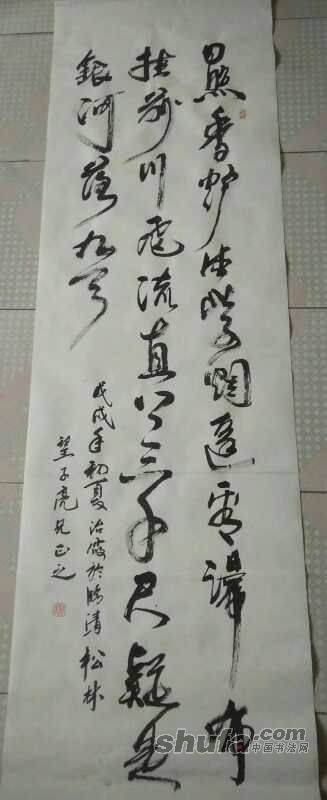 日照香炉生紫烟遥看瀑布
挂前川飞流直下三千尺疑是
銀河落九天
戊戌年初夏於临清松林
望子亮兄正之
shufa.com
中国书法网